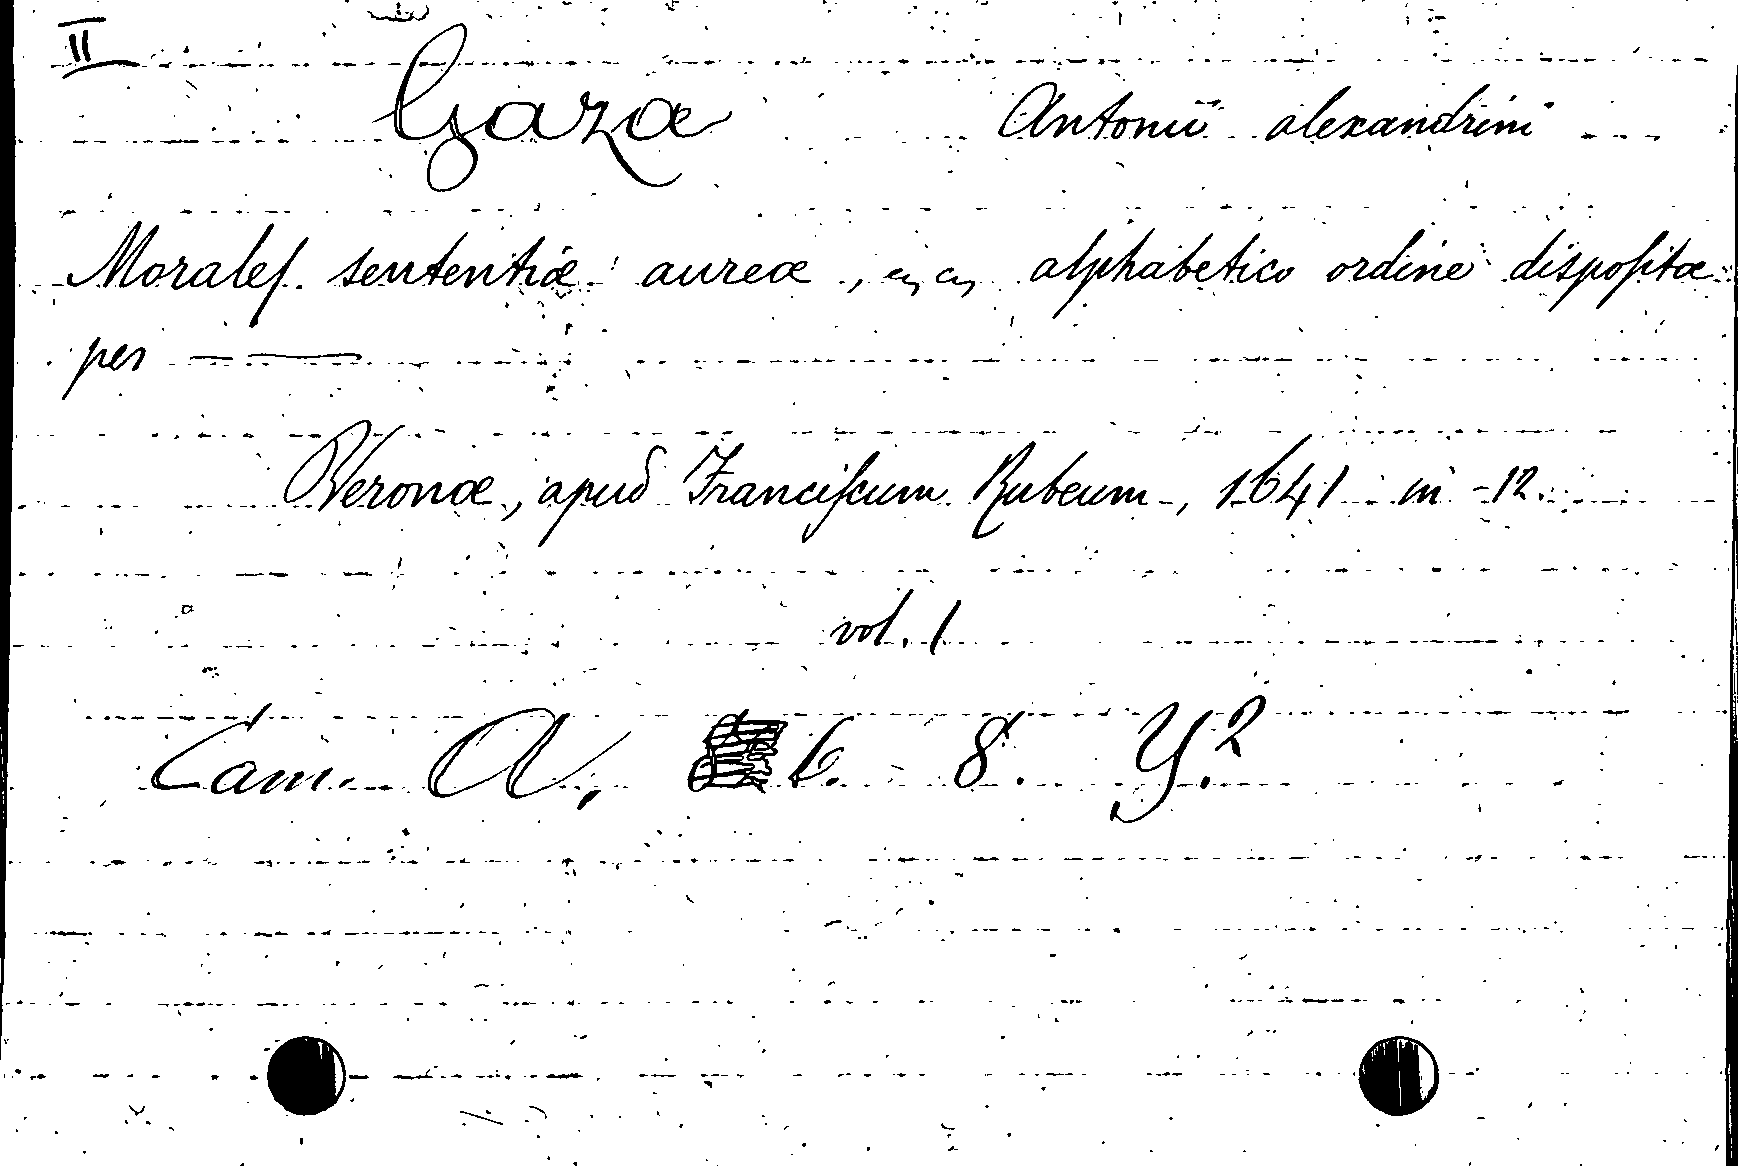 II
Gazæ Antonii alexandrini
Moralef. sententiæ aureæ, alphabetico ordine dispofitæ
per ——
Veronæ, apud Francifcum Rubeum, 1641 in-12.
vol. 1
Cam. A, 6. 8. Y.2